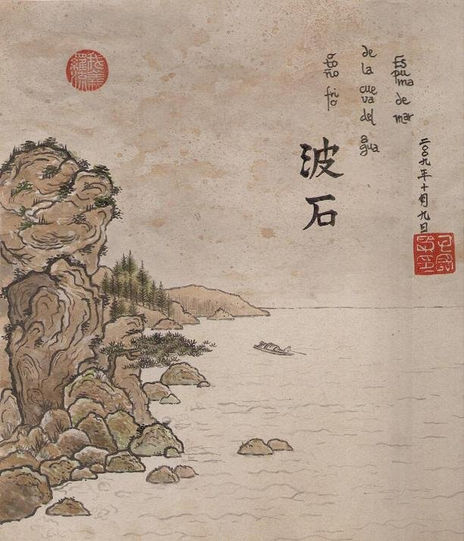 Espuma de mar
de la cueva del agua
otoño frío
波石
二〇〇九年十月九日